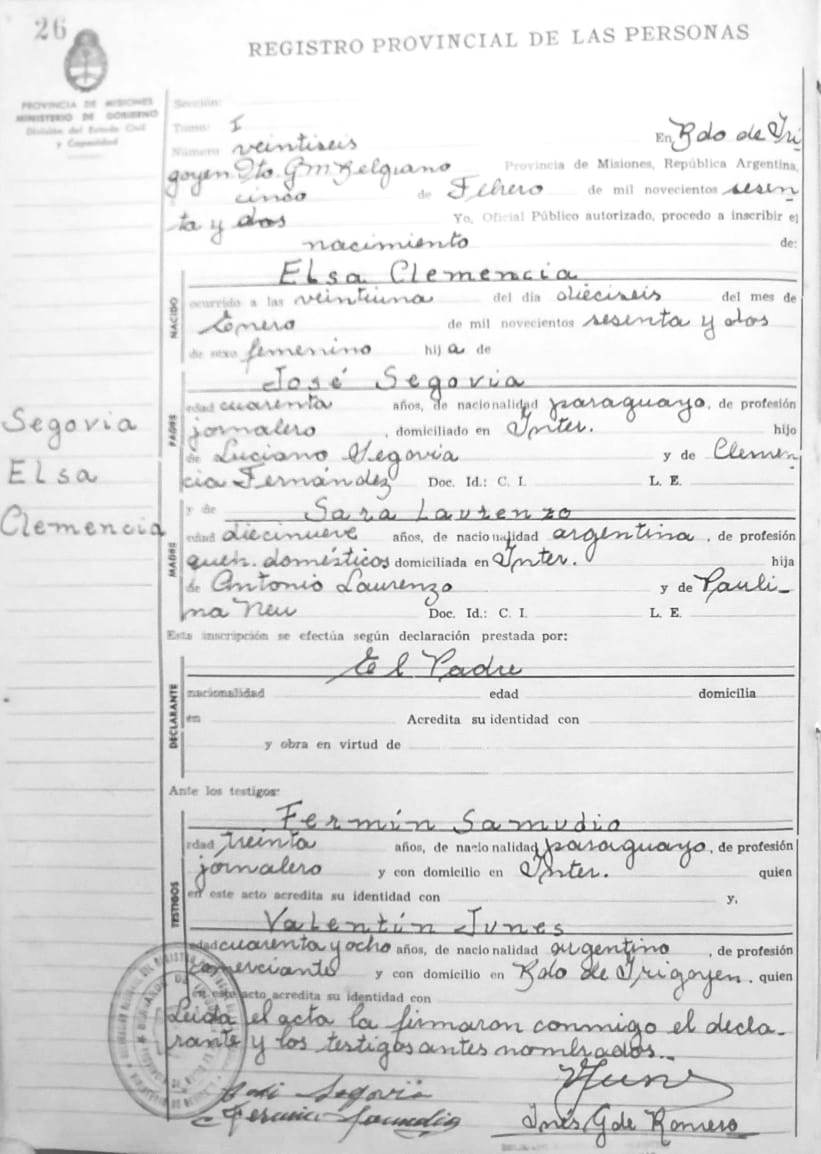 26
REGISTRO PROVINCIAL DE LAS PERSONAS
PROVINCIA DE MISIONES
MINISTERIO DE GOBIERNO
División del Estado Civil
y Capacidad
Sección:
Tomo: I
Número veintiseis En Bdo de Iri
goyen Dto. Gm Belgrano Provincia de Misiones, República Argentina,
cinco de Febrero de mil novecientos sesen
ta y dos Yo, Oficial Público autorizado, procedo a inscribir el
nacimiento de:
NACIDO
Elsa Clemencia
ocurrido a las veintiuna del día dieciseis del mes de
Enero de mil novecientos sesenta y dos
de sexo femenino hij a de
PADRE
José Segovia
edad cuarenta años, de nacionalidad paraguayo, de profesión
jornalero, domiciliado en Inter. hijo
de Luciano Segovia y de Clemen
cia Fernández Doc. Id.: C. I. L. E.
Segovia
Elsa
Clemencia
MADRE
y de Sara Laurenzo
edad diecinueve años, de nacionalidad argentina, de profesión
queh. domésticos domiciliada en Inter. hija
de Antonio Laurenzo y de Pauli-
na Neu Doc. Id.: C. I. L. E.
Esta inscripción se efectúa según declaración prestada por:
DECLARANTE
El Padre
nacionalidad edad domicilia
en Acredita su identidad con
y obra en virtud de
Ante los testigos:
TESTIGOS
Fermín Samudio
edad treinta años, de nacionalidad paraguayo, de profesión
jornalero y con domicilio en Inter. quien
en este acto acredita su identidad con y,
Valentín Junes
edad cuarenta y ocho años, de nacionalidad argentino, de profesión
comerciante y con domicilio en Bdo de Irigoyen. quien
en este acto acredita su identidad con
Leída el acta la firmaron conmigo el decla-
rante y los testigos antes nombrados.
Segovia
Inés G de Romero